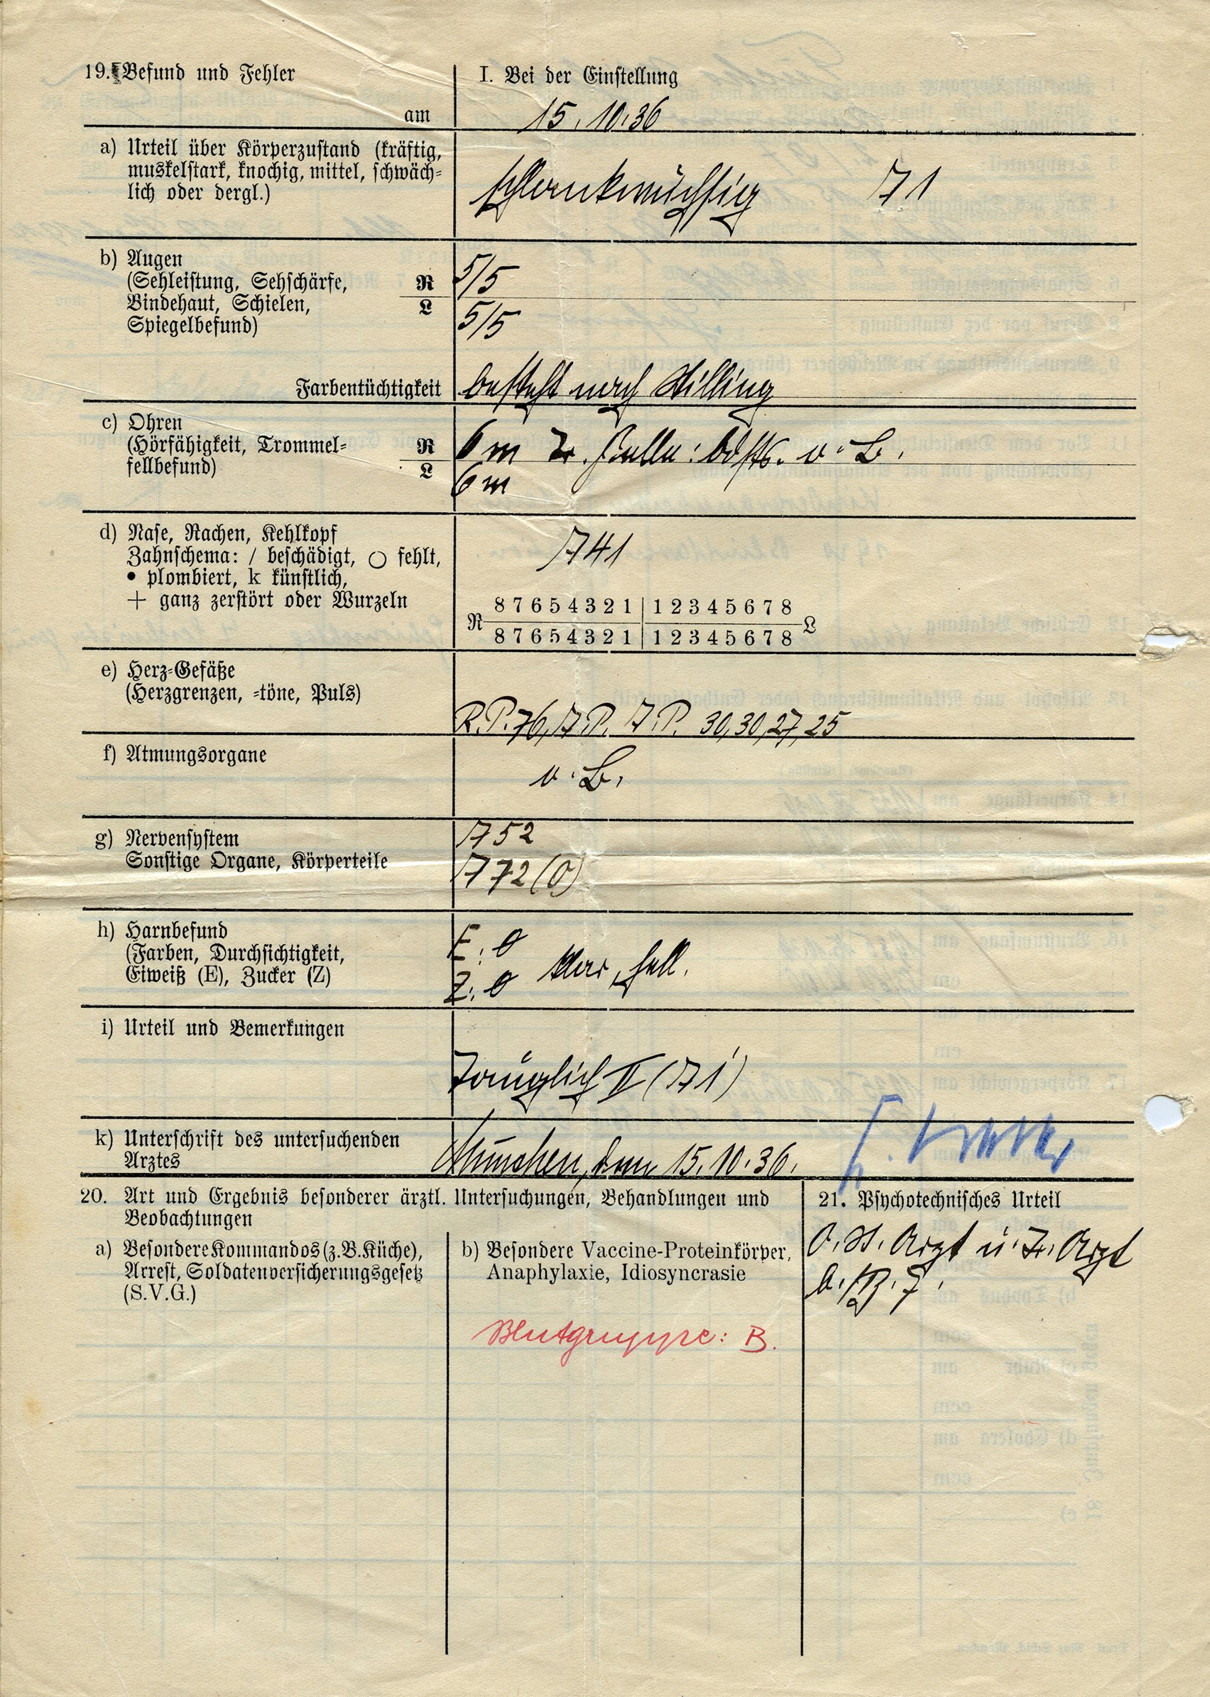 19. Befund und Fehler
am
I. Bei der Einstellung
15.10.36
a) Urteil über Körperzustand (kräftig,
muskelstark, knochig, mittel, schwäch-
lich oder dergl.)
schlankwüchsig A 71
b) Augen
(Sehleistung, Sehschärfe,
Bindehaut, Schielen,
Spiegelbefund)
R 5/5
L 5/5
Farbentüchtigkeit besteht nach Stilling
c) Ohren
(Hörfähigkeit, Trommel-
fellbefund)
R 6 m Tr. o. B.
L 6 m
d) Nase, Rachen, Kehlkopf
Zahnschema: / beschädigt, ○ fehlt,
• plombiert, k künstlich,
+ ganz zerstört oder Wurzeln
A 41
R 8 7 6 5 4 3 2 1 | 1 2 3 4 5 6 7 8 L
8 7 6 5 4 3 2 1 | 1 2 3 4 5 6 7 8
e) Herz-Gefäße
(Herzgrenzen, -töne, Puls)
R.P. 76, A.P. 30, 30, 27, 25
f) Atmungsorgane
o. B.
g) Nervensystem
Sonstige Organe, Körperteile
A 52
A 72 (O)
h) Harnbefund
(Farben, Durchsichtigkeit,
Eiweiß (E), Zucker (Z)
E: 0
Z: 0 klar, hell.
i) Urteil und Bemerkungen
Tauglich II (A 1)
k) Unterschrift des untersuchenden
Arztes
München, den 15.10.36.
20. Art und Ergebnis besonderer ärztl. Untersuchungen, Behandlungen und
Beobachtungen
a) Besondere Kommandos (z.B. Küche),
Arrest, Soldatenversicherungsgesetz
(S.V.G.)
b) Besondere Vaccine-Proteinkörper,
Anaphylaxie, Idiosyncrasie
Blutgruppe: B.
21. Psychotechnisches Urteil
O. St. Arzt u. Tr. Arzt